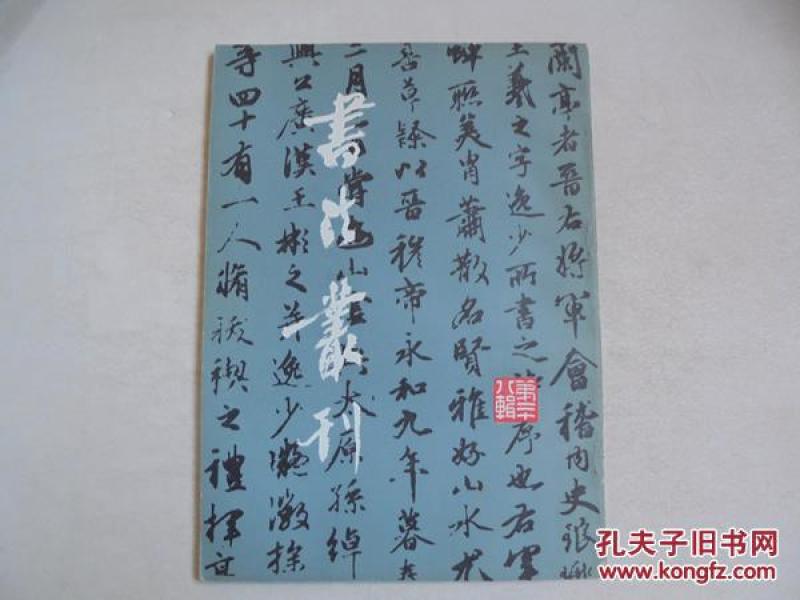 書法叢刊
第二十八輯
蘭亭者晉右將軍會稽內史琅
王羲之字逸少所書之詩序也右軍
蟬聯美胄蕭散名賢雅好山水尤
善草隸以晉穆帝永和九年暮春
三月嘗遊山太原孫綽
興公廣漢王彬之并逸少凝徽操
等四十有一人脩祓禊之禮揮
孔夫子旧书网
www.kongfz.com